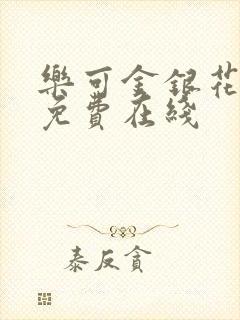 樂可金銀花
免費在綫
泰反貪